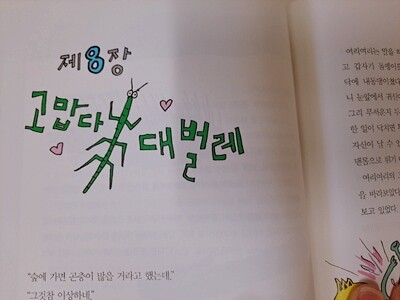 제8장
고맙다 대벌레
“숲에 가면 곤충이 많을 거라고 했는데.”
“그것참 이상하네.”
여리여리는 밤을
고 갑자기
덕에 내동댕이쳤다
니 눈앞에서 귀신
그리 무서운지
한 일이 닥치면
자신이 날 수 있
맨몸으로 위기
여리여리의
을 바라보았다
보고 있었다.